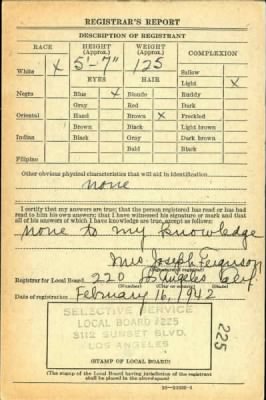 REGISTRAR'S REPORT
DESCRIPTION OF REGISTRANT
RACE HEIGHT (Approx.) WEIGHT (Approx.) COMPLEXION
5'-7" 125 Sallow
White X EYES HAIR Light X
Negro Blue X Blonde Ruddy
Gray Red Dark
Oriental Hazel Brown X Freckled
Brown Black Light brown
Indian Black Gray Dark brown
Bald Black
Filipino
Other obvious physical characteristics that will aid in identification
none
I certify that my answers are true; that the person registered has read or has had read to him his own answers; that I have witnessed his signature or mark and that all of his answers of which I have knowledge are true, except as follows:
none to my knowledge
Mrs Joseph Ferguson
Registrar for Local Board 220 Los Angeles Calif
(Number) (City or county) (State)
Date of registration February 16, 1942
SELECTIVE SERVICE
LOCAL BOARD #225
3112 SUNSET BLVD.
LOS ANGELES
225
(STAMP OF LOCAL BOARD)
(The stamp of the Local Board having jurisdiction of the registrant
shall be placed in the above space.)